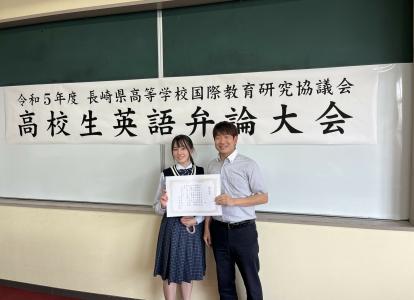 令和5年度 長崎県高等学校国際教育研究協議会
高校生英語弁論大会